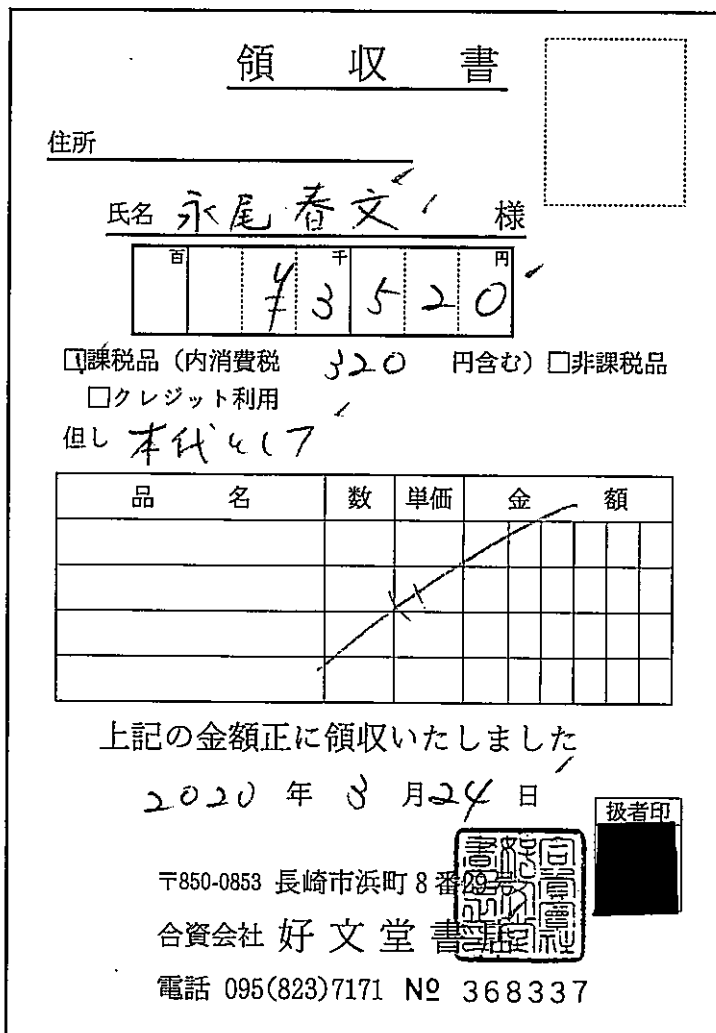 領収書
住所
氏名 永尾春文 様
百 千 円
¥3520
☑課税品（内消費税 320 円含む）□非課税品
□クレジット利用
但し 本代として
品名 数 単価 金額
上記の金額正に領収いたしました
2020 年 3 月 24 日
扱者印
〒850-0853 長崎市浜町8番29号
合資会社 好文堂書店
電話 095(823)7171 № 368337